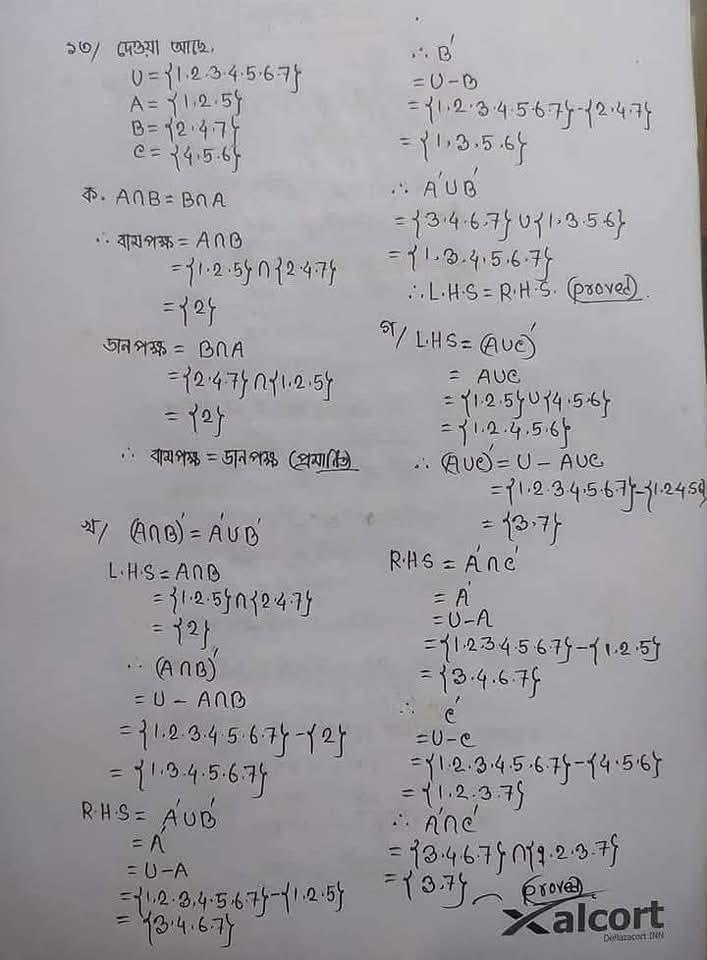 ১৩/ দেওয়া আছে,
U = {1.2.3.4.5.6.7}
A = {1.2.5}
B = {2.4.7}
C = {4.5.6}
ক. A∩B = B∩A
∴ বামপক্ষ = A∩B
= {1.2.5} ∩ {2.4.7}
= {2}
ডানপক্ষ = B∩A
= {2.4.7} ∩ {1.2.5}
= {2}
∴ বামপক্ষ = ডানপক্ষ (প্রমাণিত)
খ/ (A∩B)' = A'∪B'
L.H.S = A∩B
= {1.2.5} ∩ {2.4.7}
= {2}
∴ (A∩B)'
= U - A∩B
= {1.2.3.4.5.6.7} - {2}
= {1.3.4.5.6.7}
R.H.S = A'∪B'
= A'
= U-A
= {1.2.3.4.5.6.7} - {1.2.5}
= {3.4.6.7}
∴ B'
= U-B
= {1.2.3.4.5.6.7} - {2.4.7}
= {1,3.5.6}
∴ A'∪B'
= {3.4.6.7} ∪ {1.3.5.6}
= {1.3.4.5.6.7}
∴ L.H.S = R.H.S. (proved).
গ/ L.H.S = (A∪C)'
= A∪C
= {1.2.5} ∪ {4.5.6}
= {1.2.4.5.6}
∴ (A∪C)' = U - A∪C
= {1.2.3.4.5.6.7} - {1.2.4.5.6}
= {3,7}
R.H.S = A'∩C'
= A'
= U-A
= {1.2.3.4.5.6.7} - {1.2.5}
= {3.4.6.7}
∴ C'
= U-C
= {1.2.3.4.5.6.7} - {4.5.6}
= {1.2.3.7}
∴ A'∩C'
= {3.4.6.7} ∩ {1.2.3.7}
= {3,7} (proved)
Xalcort
Deflazacort INN